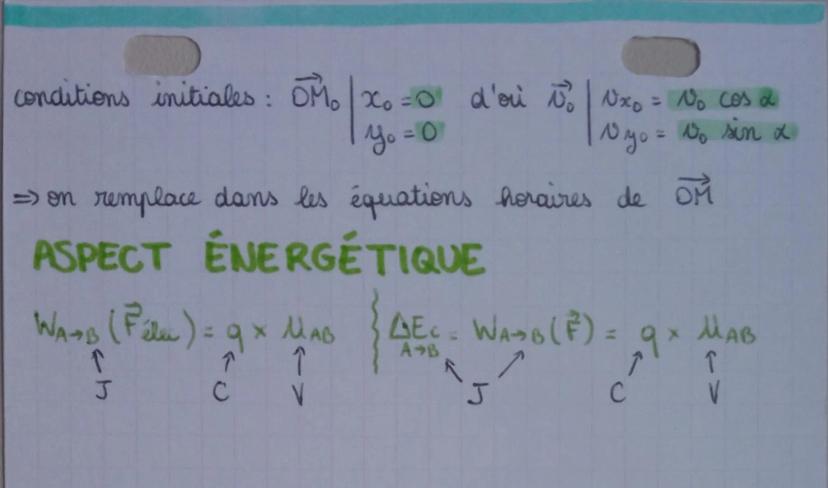 conditions initiales : OM₀ | x₀ = 0 d'où v₀ | vx₀ = v₀ cos α
y₀ = 0 vy₀ = v₀ sin α
=> on remplace dans les équations horaires de OM
ASPECT ÉNERGÉTIQUE
W A→B (F élec) = q × U AB { ΔEc = W A→B (F) = q × U AB
A→B
J C V J C V